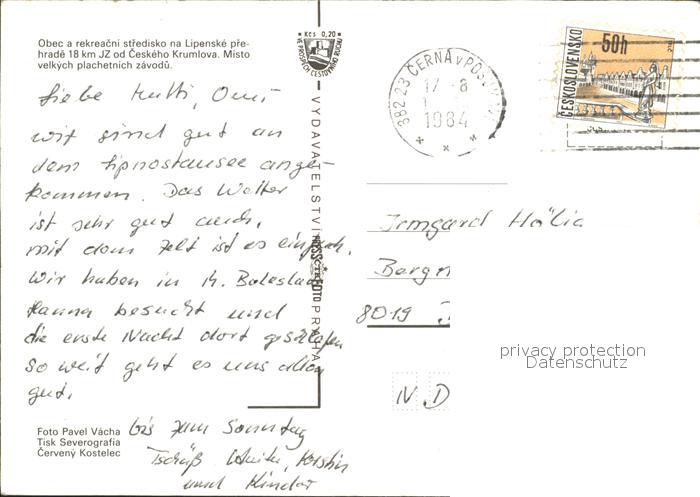 Obec a rekreační středisko na Lipenské pře-
hradě 18 km JZ od Českého Krumlova. Místo
velkých plachetních závodů.
Kčs 0,20
Liebe Mutti, Omi
wir sind gut an
dem Lipnostausee ange-
kommen. Das Wetter
ist sehr gut auch,
mit dem Zelt ist es einfach.
Wir haben in M. Boleslav
Hanna besucht und
die erste Nacht dort geschlafen
So weit geht es uns allen
gut.
bis zum Sonntag
Tschüß Kerstin
und Kinder
Foto Pavel Vácha
Tisk Severografia
Červený Kostelec
VYDAVATELSTVÍ PRESSFOTO PRAHA
382 23 ČERNÁ V POŠUMAVÍ
17-8
1984
ČESKOSLOVENSKO
50h
Irmgard
Berg
8019
N D
privacy protection
Datenschutz